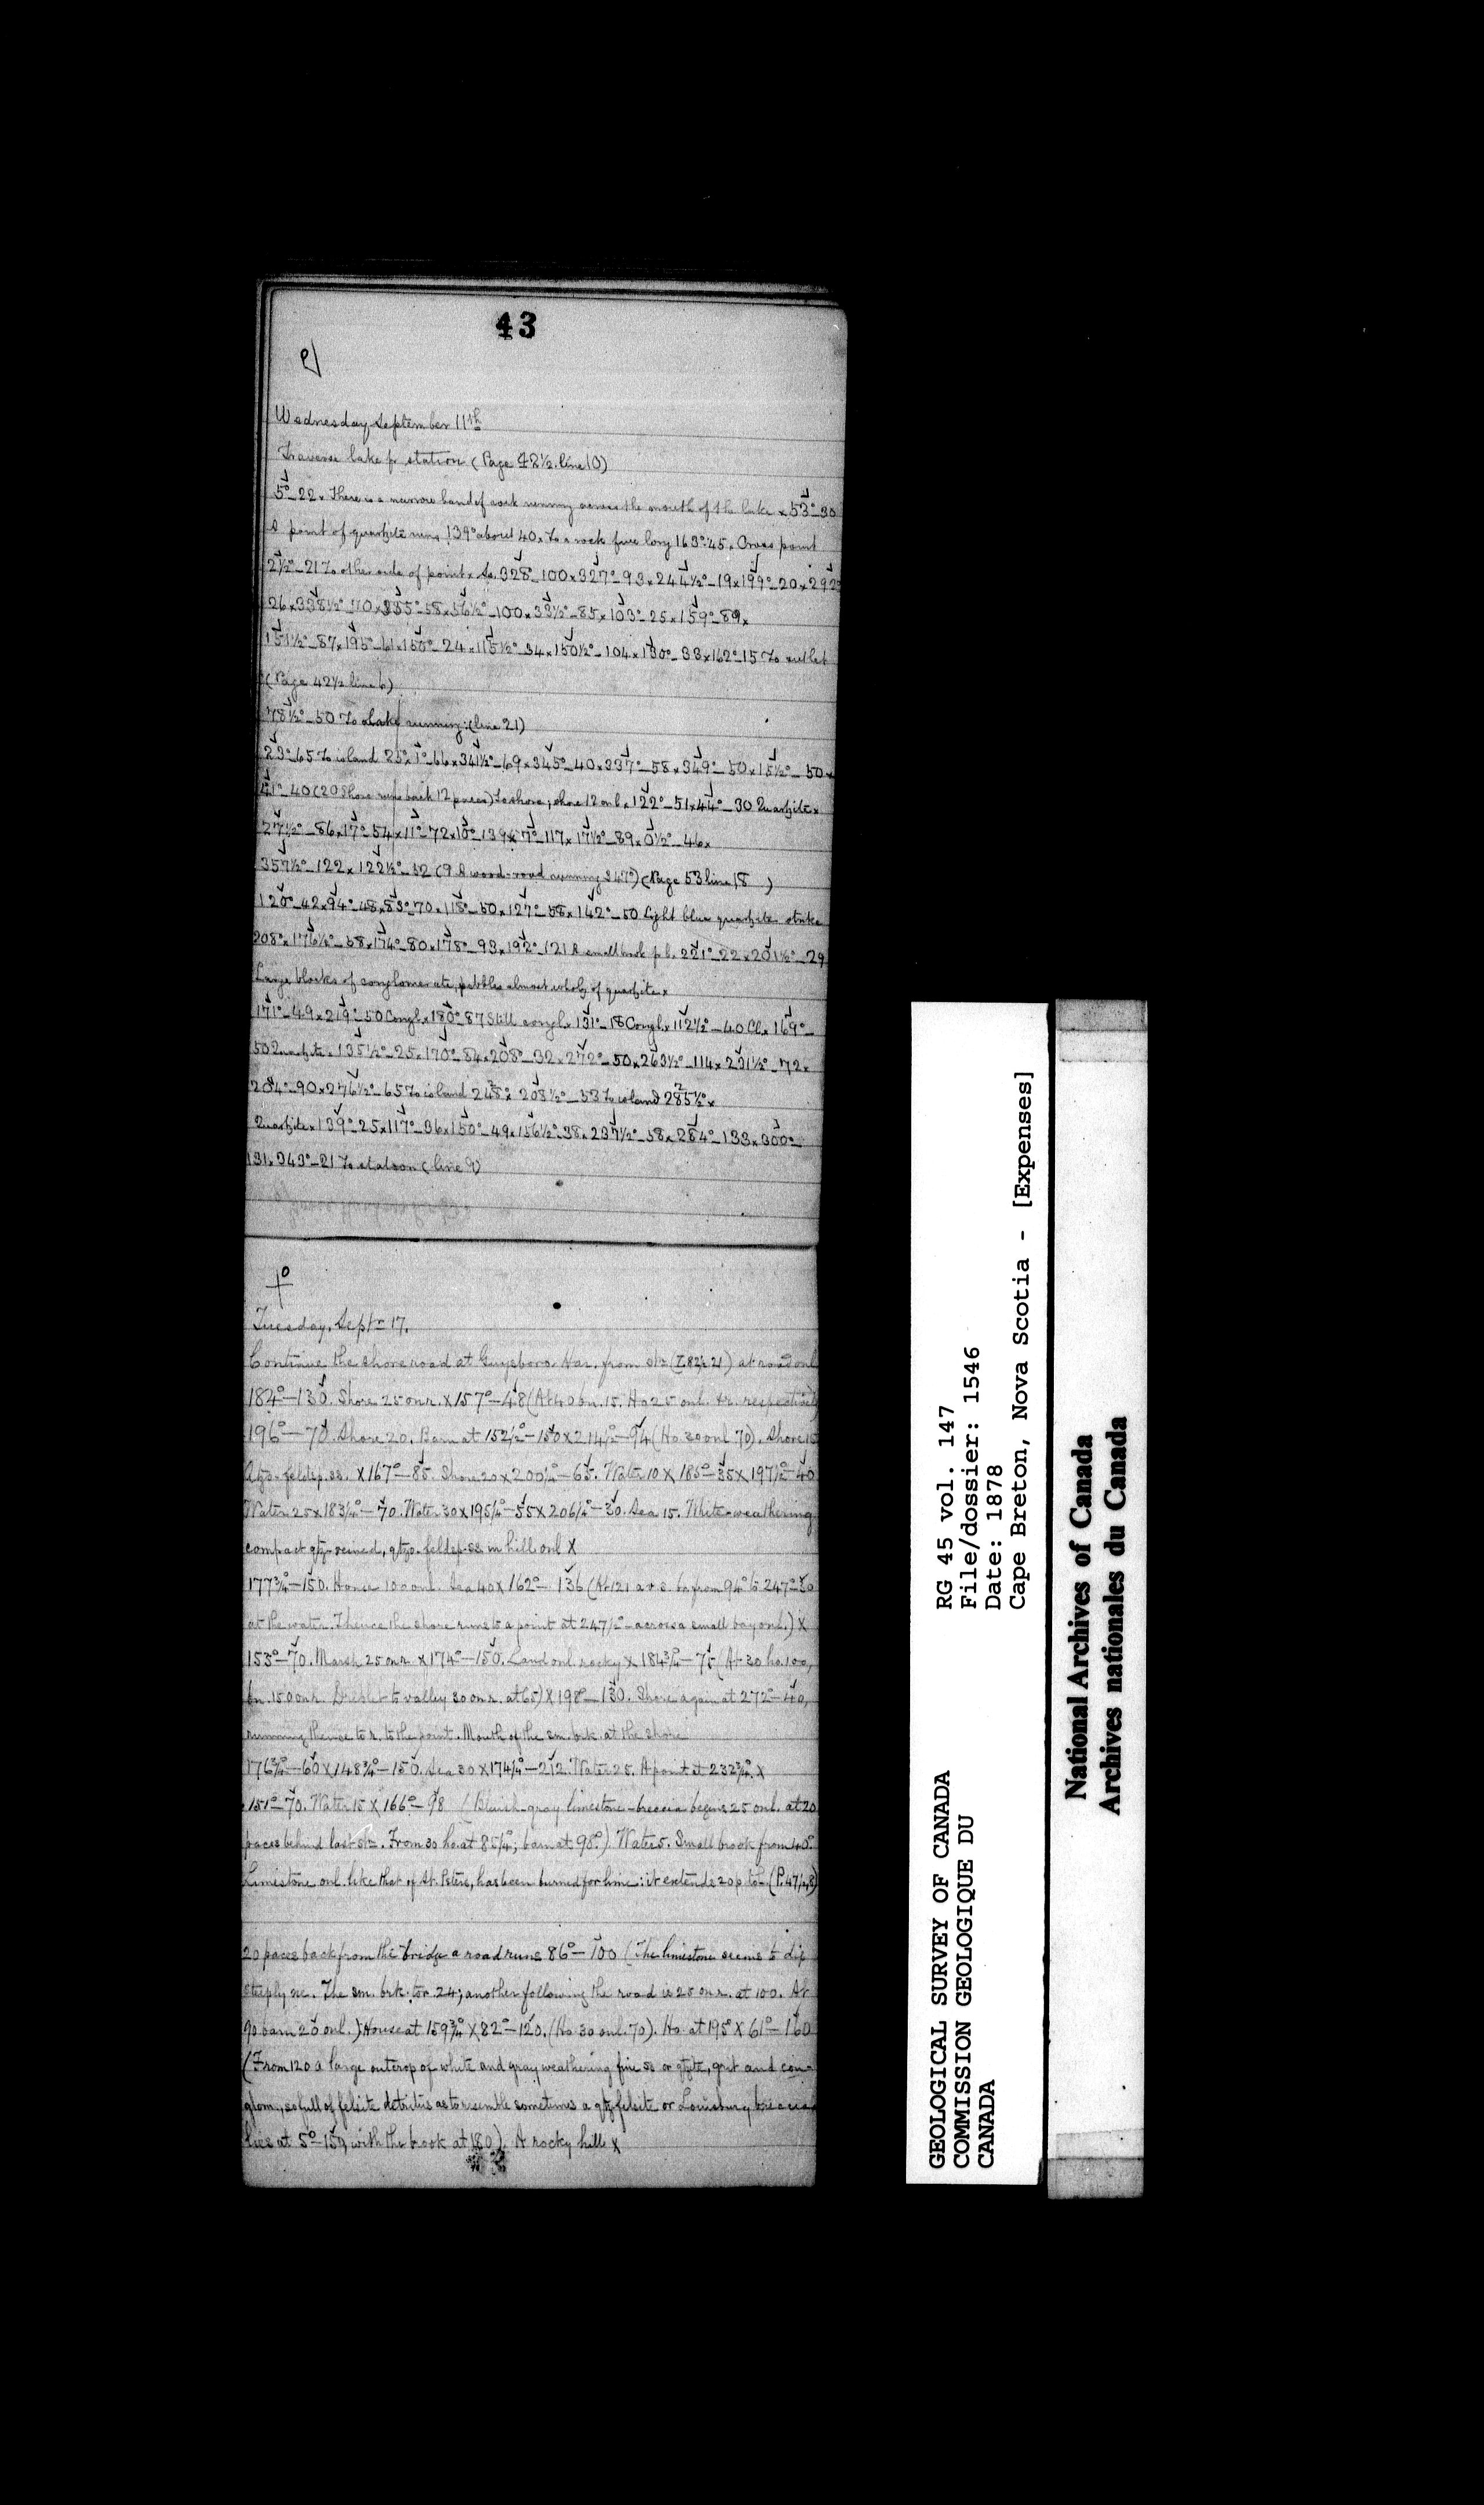 43
Wednesday, September 11th
Traverse lake fr station (Page 42½ line 10)
5° - 22 x There is a narrow band of rock running across the mouth of the lake x 53° - 30
A point of quartzite runs 139° about 40. To a rock five long 163° 45. Cross point
2½° - 21 To other side of point x 328° - 100 x 327° - 93 x 244½° - 19 x 199° - 20 x 292°
26 x 338½° - 70 x 355° - 58 x 56½° - 100 x 33½° - 85 x 103° - 25 x 159° - 89 x
151½° - 87 x 195° - 61 x 150° - 24 x 115½° - 34 x 150½° - 104 x 130° - 33 x 162° - 15 To outlet
(Page 42½ line 6)
78½° - 50 To a lake running: (line 21)
23° - 65 To island 25° x 1° - 66 x 341½° - 69 x 345° - 40 x 337° - 58 x 349° - 50 x 15½° - 50 x
41° - 40 (20 shore runs back 12 paces) To shore; shore 12 onl x 122° - 51 x 44° - 30 Quartzite x
27½° - 86 x 17° - 54 x 11° - 72 x 10° - 139 x 7° - 117 x 17½° - 89 x 0½° - 46 x
357½° - 122 x 122½° - 32 (9 A wood-road running 347°) (Page 53 line 18 )
120° - 42 x 94° - 48 x 83° - 70 x 118° - 50 x 127° - 58 x 142° - 50 Light blue quartzite strike
208° x 176½° - 58 x 174° - 80 x 178° - 93 x 192° - 121 A small brook f. l. 221° - 22 x 201½° - 29
Large blocks of conglomerate, pebbles almost wholly of quartzite x
171° - 49 x 219° - 50 Congl. x 180° - 87 Still congl. x 131° - 18 Congl. x 112½° - 40 Cl. x 169° -
50 Quartzite x 135½° - 25 x 170° - 84 x 208° - 32 x 272° - 50 x 263½° - 114 x 231½° - 72 x
204° - 90 x 276½° - 65 To island 248° x 208½° - 53 To island 285½° x
Quartzite x 139° - 25 x 117° - 36 x 150° - 49 x 156½° - 38 x 237½° - 58 x 284° - 133 x 300° -
131 x 343° - 21 To station (line 9)
Tuesday, Sept= 17.
Continue the shore road at Guysboro Har. from stn (T. 82½, 21) at road onl
184° - 130. Shore 25 on r. X 157° - 48 (At 40 bn. 15. Ho 25 onl. & r. respectively)
196° - 70. Shore 20. Barn at 152½° - 150 X 214½° - 94 (Ho. 30 onl 70). Shore 15
Qtzo-feldsp. ss. X 167° - 85. Shore 20 X 200¼° - 65. Water 10 X 185° - 35 X 197½° - 40
Water 25 X 183¼° - 70. Water 30 X 195¼° - 55 X 206¼° - 30. Sea 15. White-weathering
compact qtz-veined, qtzo-feldsp. ss. in hill onl X
177¾° - 150. House 100 onl. Sea 40 X 162° - 136 (At 121 a v. s. br. from 94° to 247° - 30
at the water. Thence the shore runs to a point at 247½° - across a small bay onl.) X
153° - 70. Marsh 25 on r. X 174° - 150. Land onl. rocky X 184¾° - 75 (At 30 ho. 100,
bn. 150 on r. to valley 30 on r. at 65) X 198° - 130. Shore again at 272° - 40,
running thence to r. to the point. Mouth of the sm. brk. at the shore
176¾° - 60 X 148¾° - 150. Sea 30 X 174¼° - 212. Water 25. A point at 232¾°. X
151° - 70. Water 15 X 166° - 98 (Bluish-gray limestone-breccia begins 25 onl. at 20
paces behind last stn. From 30 ho. at 85¼°; barn at 98°.) Water 5. Small brook from 40°
Limestone onl. like that of St. Peters, has been burned for lime: it extends 20 p to l. (P. 47½, 8)
20 paces back from the bridge a road runs 86° - 100 (The limestone seems to dip
steeply ne. The sm. brk. to r 24; another following the road is 25 on r. at 100. At
90 barn 20 onl.) House at 159¾° X 82° - 120. (Ho 30 onl. 70). Ho. at 195° X 61° - 160
(From 120 a large outcrop of white and gray weathering fine ss or qtzte, grit and con-
glom., so full of felsite detritus as to resemble sometimes a qtz felsite or Louisburg breccia
lies at 5° - 150, with the brook at 180). A rocky hill X
GEOLOGICAL SURVEY OF CANADA
COMMISSION GEOLOGIQUE DU
CANADA
RG 45 vol. 147
File/dossier: 1546
Date: 1878
Cape Breton, Nova Scotia - [Expenses]
National Archives of Canada
Archives nationales du Canada